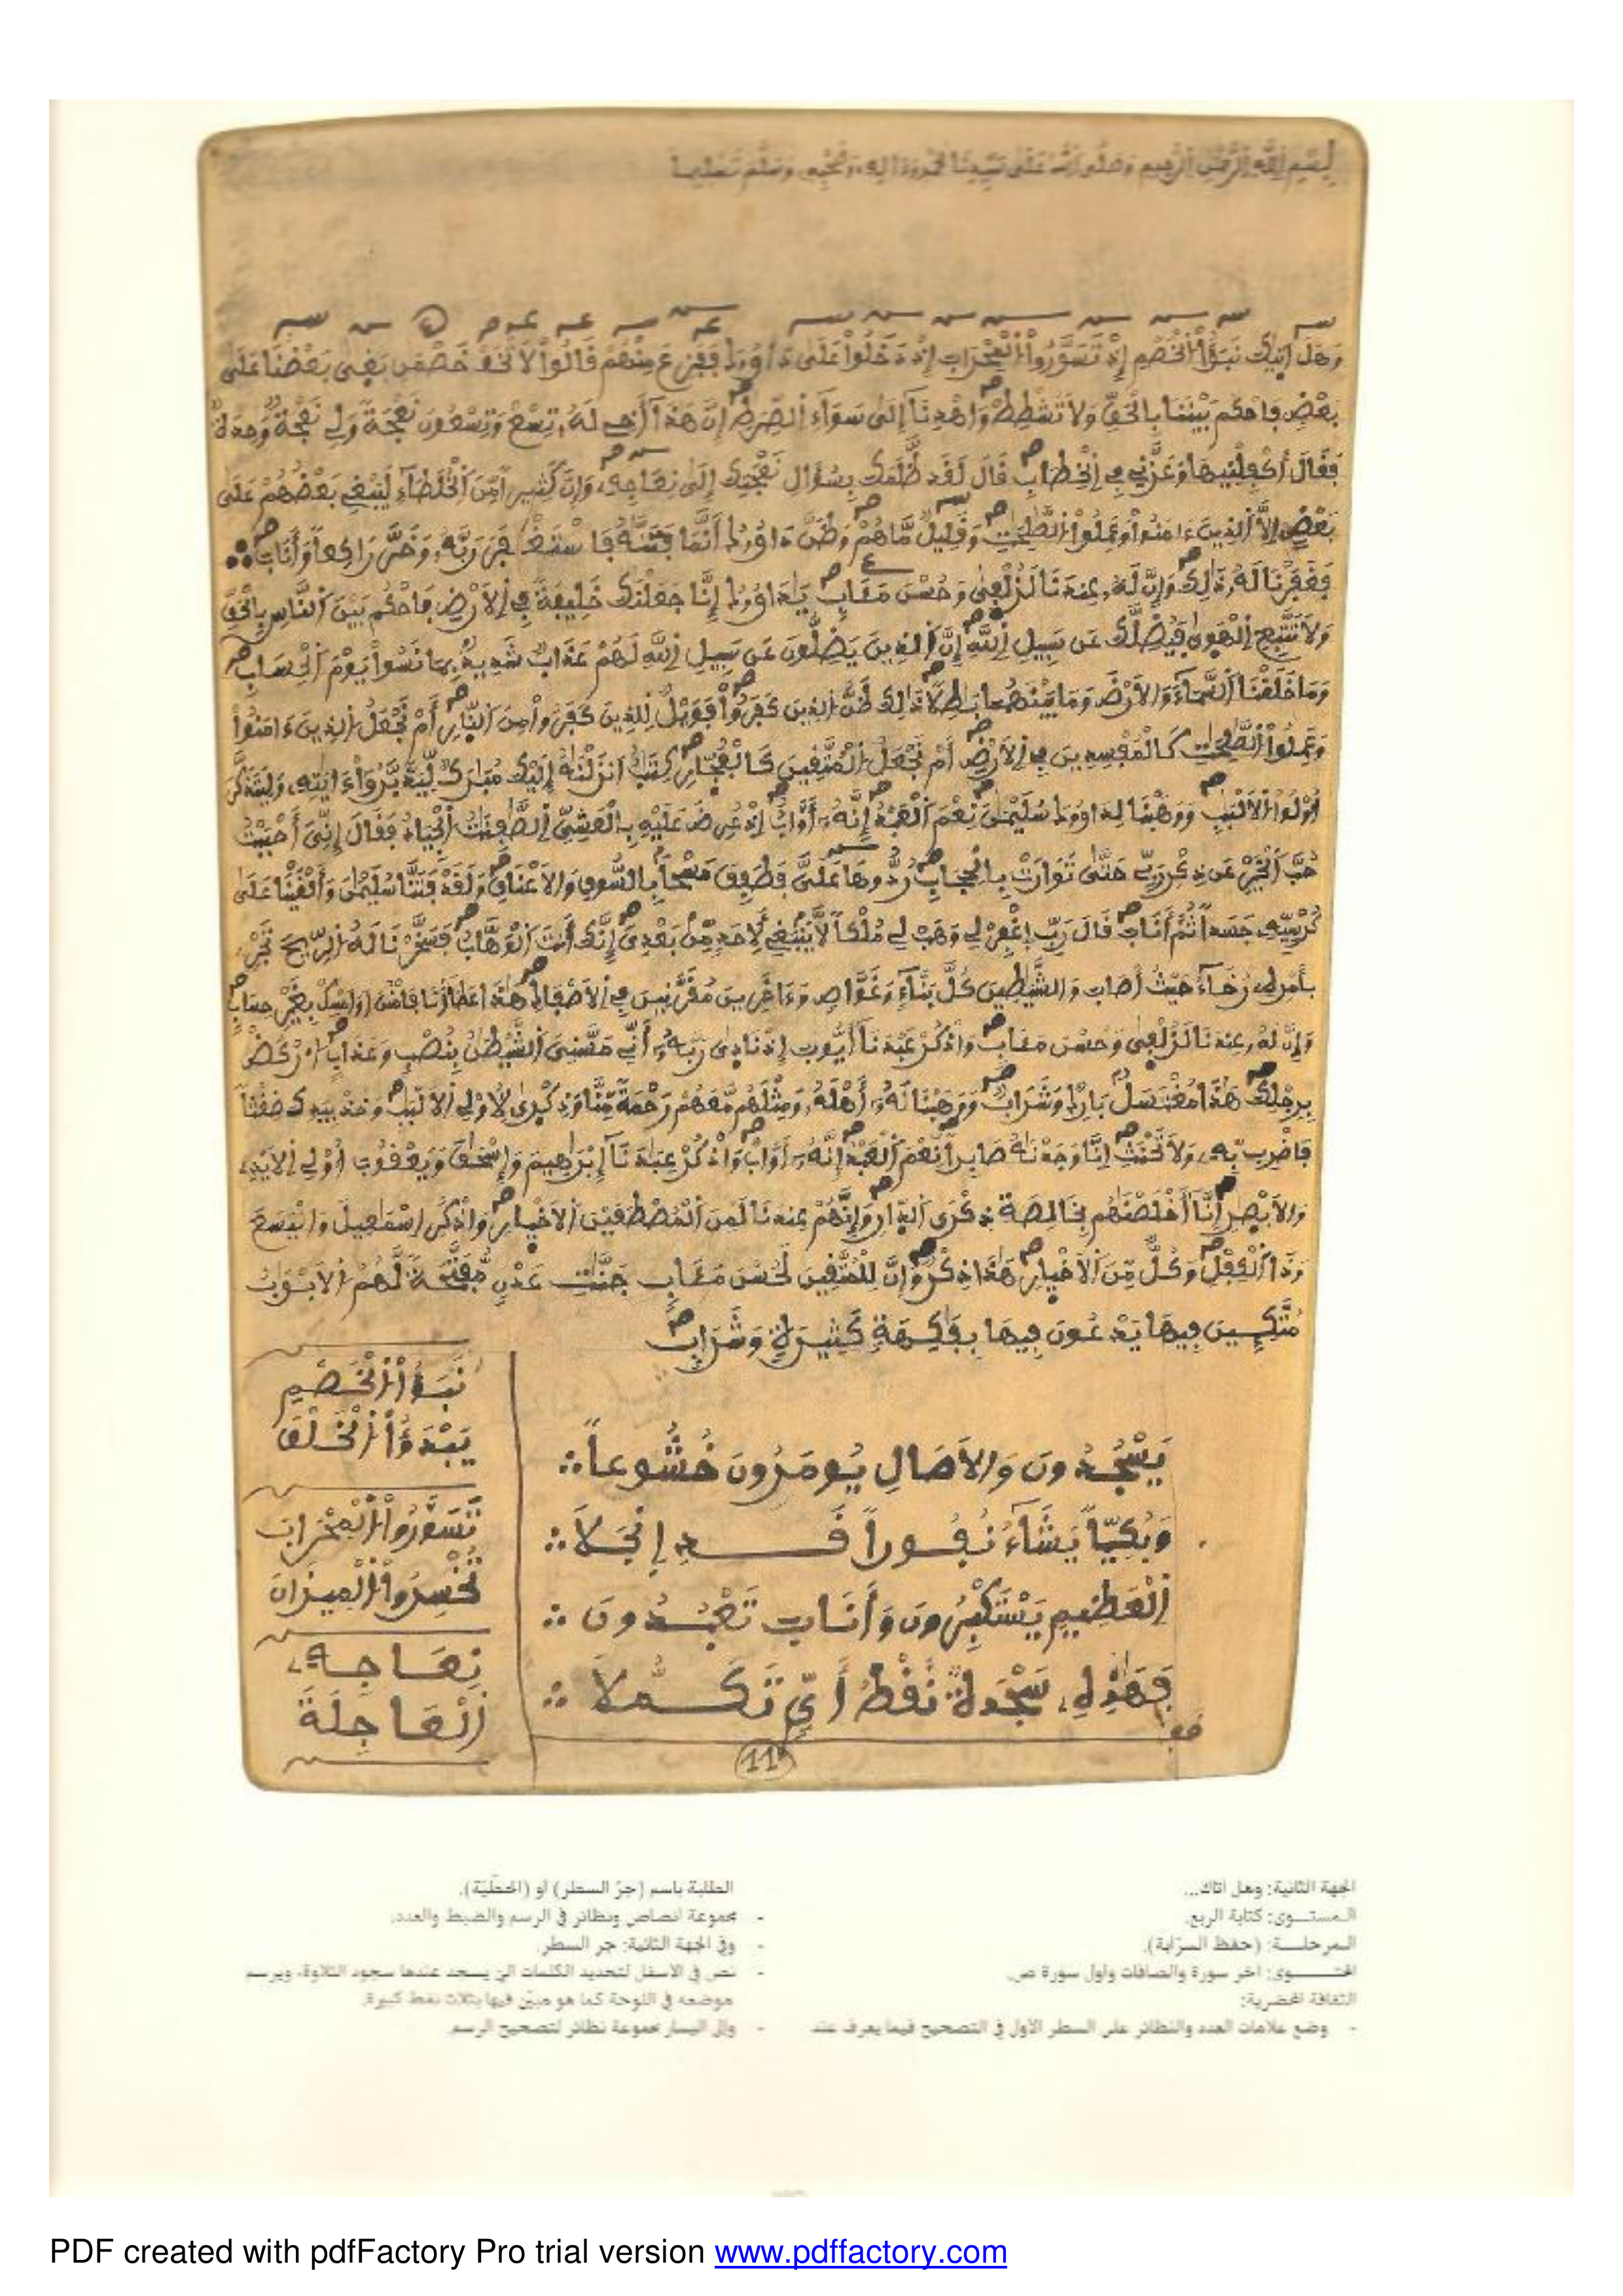 بِسْمِ اللَّهِ الرَّحْمَٰنِ الرَّحِيمِ وَصَلَّى اللَّهُ عَلَى سَيِّدِنَا مُحَمَّدٍ وَءَالِهِ وَصَحْبِهِ وَسَلَّمَ تَسْلِيماً
وَهَلْ أَتَيٰكَ نَبَؤُاْ الْخَصْمِ إِذْ تَسَوَّرُواْ الْمِحْرَابَ إِذْ دَخَلُواْ عَلَىٰ دَاوُۥدَ فَفَزِعَ مِنْهُمْ قَالُواْ لَا تَخَفْ خَصْمَٰنِ بَغَىٰ بَعْضُنَا عَلَىٰ
بَعْضٍ فَاحْكُم بَيْنَنَا بِالْحَقِّ وَلَا تُشْطِطْ وَاهْدِنَآ إِلَىٰ سَوَآءِ الصِّرَٰطِ إِنَّ هَٰذَآ أَخِے لَهُۥ تِسْعٌ وَتِسْعُونَ نَعْجَةً وَلِے نَعْجَةٌ وَٰحِدَةٌ
فَقَالَ أَكْفِلْنِيهَا وَعَزَّنِے فِے الْخِطَابِ قَالَ لَقَد ظَّلَمَكَ بِسُؤَالِ نَعْجَتِكَ إِلَىٰ نِعَاجِهِۦ وَإِنَّ كَثِيراً مِّنَ الْخُلَطَآءِ لَيَبْغِے بَعْضُهُمْ عَلَىٰ
بَعْضٍ اِلَّا الذِينَ ءَامَنُواْ وَعَمِلُواْ الصَّٰلِحَٰتِ وَقَلِيلٌ مَّا هُمْ وَظَنَّ دَاوُۥدُ أَنَّمَا فَتَنَّٰهُ فَاسْتَغْفَرَ رَبَّهُۥ وَخَرَّ رَاكِعاً وَأَنَابَ ∴
فَغَفَرْنَا لَهُۥ ذَٰلِكَ وَإِنَّ لَهُۥ عِندَنَا لَزُلْفَىٰ وَحُسْنَ مَـَٔابٍ يَٰدَاوُۥدُ إِنَّا جَعَلْنَٰكَ خَلِيفَةً فِے الْأَرْضِ فَاحْكُم بَيْنَ النَّاسِ بِالْحَقِّ
وَلَا تَتَّبِعِ الْهَوَىٰ فَيُضِلَّكَ عَن سَبِيلِ اللَّهِ إِنَّ الذِينَ يَضِلُّونَ عَن سَبِيلِ اللَّهِ لَهُمْ عَذَابٌ شَدِيدٌ بِمَا نَسُواْ يَوْمَ الْحِسَابِ
وَمَا خَلَقْنَا السَّمَآءَ وَالْأَرْضَ وَمَا بَيْنَهُمَا بَٰطِلاً ذَٰلِكَ ظَنُّ الذِينَ كَفَرُواْ فَوَيْلٌ لِّلذِينَ كَفَرُواْ مِنَ النَّارِ أَمْ نَجْعَلُ الذِينَ ءَامَنُواْ
وَعَمِلُواْ الصَّٰلِحَٰتِ كَالْمُفْسِدِينَ فِے الْأَرْضِ أَمْ نَجْعَلُ الْمُتَّقِينَ كَالْفُجَّارِ كِتَٰبٌ أَنزَلْنَٰهُ إِلَيْكَ مُبَٰرَكٌ لِّيَدَّبَّرُواْ ءَايَٰتِهِۦ وَلِيَتَذَكَّرَ
أُوْلُواْ الْأَلْبَٰبِ وَوَهَبْنَا لِدَاوُۥدَ سُلَيْمَٰنَ نِعْمَ الْعَبْدُ إِنَّهُۥ أَوَّابٌ إِذْ عُرِضَ عَلَيْهِ بِالْعَشِيِّ الصَّٰفِنَٰتُ الْجِيَادُ فَقَالَ إِنِّيَ أَحْبَبْتُ
حُبَّ الْخَيْرِ عَن ذِكْرِ رَبِّے حَتَّىٰ تَوَارَتْ بِالْحِجَابِ رُدُّوهَا عَلَيَّ فَطَفِقَ مَسْحاً بِالسُّوقِ وَالْأَعْنَاقِ وَلَقَدْ فَتَنَّا سُلَيْمَٰنَ وَأَلْقَيْنَا عَلَىٰ
كُرْسِيِّهِۦ جَسَداً ثُمَّ أَنَابَ قَالَ رَبِّ اِغْفِرْ لِے وَهَبْ لِے مُلْكاً لَّا يَنۢبَغِے لِأَحَدٍ مِّنۢ بَعْدِيَ إِنَّكَ أَنتَ الْوَهَّابُ فَسَخَّرْنَا لَهُ الرِّيحَ تَجْرِے
بِأَمْرِهِۦ رُخَآءً حَيْثُ أَصَابَ وَالشَّيَٰطِينَ كُلَّ بَنَّآءٍ وَغَوَّاصٍ وَءَاخَرِينَ مُقَرَّنِينَ فِے الْأَصْفَادِ هَٰذَا عَطَآؤُنَا فَامْنُنْ أَوْ أَمْسِكْ بِغَيْرِ حِسَابٍ
وَإِنَّ لَهُۥ عِندَنَا لَزُلْفَىٰ وَحُسْنَ مَـَٔابٍ وَاذْكُرْ عَبْدَنَآ أَيُّوبَ إِذْ نَادَىٰ رَبَّهُۥٓ أَنِّے مَسَّنِيَ الشَّيْطَٰنُ بِنُصْبٍ وَعَذَابٍ ارْكُضْ
بِرِجْلِكَ هَٰذَا مُغْتَسَلٌ بَارِدٌ وَشَرَابٌ وَوَهَبْنَا لَهُۥٓ أَهْلَهُۥ وَمِثْلَهُم مَّعَهُمْ رَحْمَةً مِّنَّا وَذِكْرَىٰ لِأُوْلِے الْأَلْبَٰبِ وَخُذْ بِيَدِكَ ضِغْثاً
فَاضْرِب بِّهِۦ وَلَا تَحْنَثِ اِنَّا وَجَدْنَٰهُ صَابِراً نِّعْمَ الْعَبْدُ إِنَّهُۥٓ أَوَّابٌ وَاذْكُرْ عِبَٰدَنَآ إِبْرَٰهِيمَ وَإِسْحَٰقَ وَيَعْقُوبَ أُوْلِے الْأَيْدِے
وَالْأَبْصَٰرِ إِنَّآ أَخْلَصْنَٰهُم بِخَالِصَةِ ذِكْرَى الدَّارِ وَإِنَّهُمْ عِندَنَا لَمِنَ الْمُصْطَفَيْنَ الْأَخْيَارِ وَاذْكُرِ اِسْمَٰعِيلَ وَالْيَسَعَ
وَذَا الْكِفْلِ وَكُلٌّ مِّنَ الْأَخْيَارِ هَٰذَا ذِكْرٌ وَإِنَّ لِلْمُتَّقِينَ لَحُسْنَ مَـَٔابٍ جَنَّٰتِ عَدْنٍ مُّفَتَّحَةً لَّهُمُ الْأَبْوَٰبُ
مُتَّكِـِٕينَ فِيهَا يَدْعُونَ فِيهَا بِفَٰكِهَةٍ كَثِيرَةٍ وَشَرَابٍ
يَسْجُدُونَ وَالْأَصَالِ يُومَرُونَ خُشُوعاً ∴
وَبُكِيّاً يَشَآءُ نُفُوراً قَدِ اِنْجَلَا ∴
الْعَظِيمِ يَسْتَكْبِرُونَ وَأَنَابَ تَعْبُدُونَ ∴
فَهَٰذِهِۦ سَجْدَةٌ فَقَطْ أَيْ تَكَمُّلَا ∴
11
نَبَؤُاْ الْخَصْمِ
يَبْدَؤُاْ الْخَلْقَ
تَسَوَّرُواْ الْمِحْرَابَ
تُخْسِرُواْ الْمِيزَانَ
نِعَاجِهِۦ
الْعَاجِلَةَ
الجهة الثانية: وهل أتاك...
المستوى: كتابة الربع.
المرحلة: (حفظ السرّابة).
المحتوى: آخر سورة والصافات وأول سورة ص.
الثقافة الحضرية:
- وضع علامات العدد والنظائر على السطر الأول في التصحيح فيما يعرف عند
الطلبة باسم (جرّ السطر) أو (الحطّيّة).
- مجموعة أنصاص ونظائر في الرسم والضبط والعدد.
- وفي الجهة الثانية: جر السطر.
- نص في الأسفل لتحديد الكلمات التي يسجد عندها سجود التلاوة، ويرسم
موضعه في اللوحة كما هو مبيّن فيها بثلاث نقط كبيرة.
- وإلى اليسار مجموعة نظائر لتصحيح الرسم.
PDF created with pdfFactory Pro trial version www.pdffactory.com